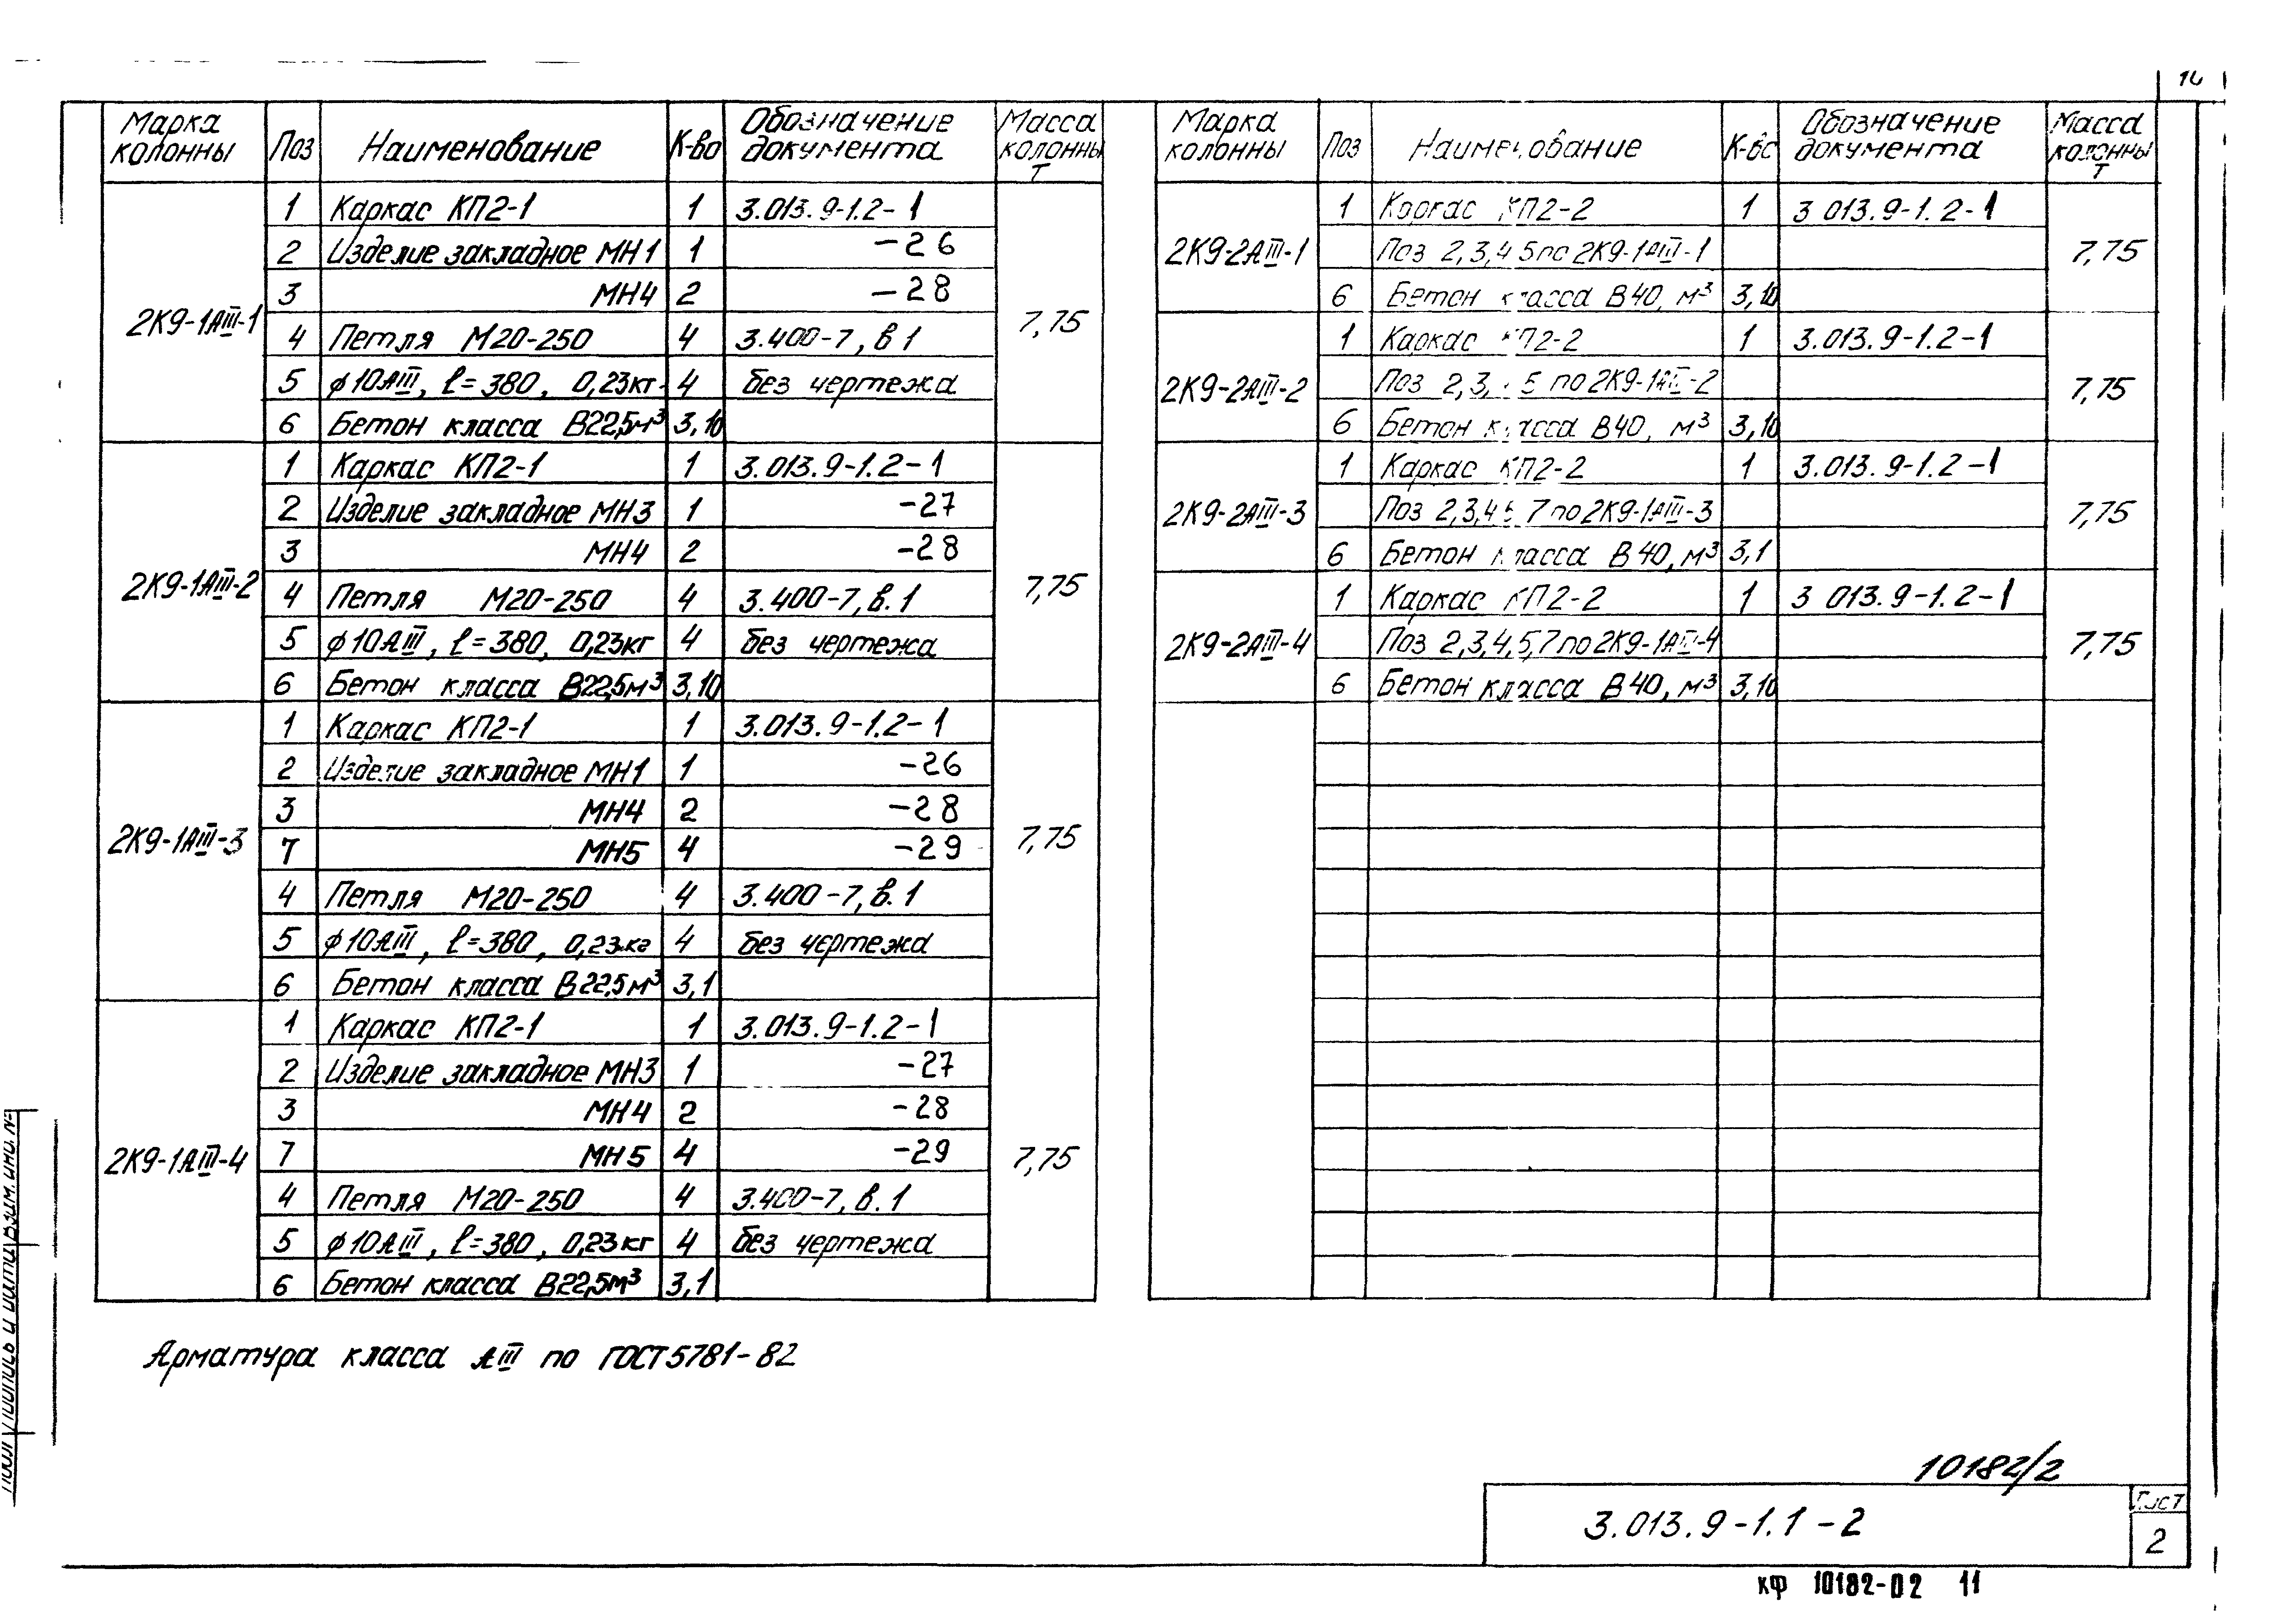 Марка колонны Поз Наименование К-во Обозначение документа Масса колонны Т
2К9-1АIII-1 7,75
1 Каркас КП2-1 1 3.013.9-1.2-1
2 Изделие закладное МН1 1 -26
3 МН4 2 -28
4 Петля М20-250 4 3.400-7, в 1
5 ϕ10АIII, ℓ=380, 0,23кг 4 без чертежа
6 Бетон класса В22,5м³ 3,10
2К9-1АIII-2 7,75
1 Каркас КП2-1 1 3.013.9-1.2-1
2 Изделие закладное МН3 1 -27
3 МН4 2 -28
4 Петля М20-250 4 3.400-7, в.1
5 ϕ10АIII, ℓ=380, 0,23кг 4 без чертежа
6 Бетон класса В22,5м³ 3,10
2К9-1АIII-3 7,75
1 Каркас КП2-1 1 3.013.9-1.2-1
2 Изделие закладное МН1 1 -26
3 МН4 2 -28
7 МН5 4 -29
4 Петля М20-250 4 3.400-7, в.1
5 ϕ10АIII, ℓ=380, 0,23кг 4 без чертежа
6 Бетон класса В22,5м³ 3,1
2К9-1АIII-4 7,75
1 Каркас КП2-1 1 3.013.9-1.2-1
2 Изделие закладное МН3 1 -27
3 МН4 2 -28
7 МН5 4 -29
4 Петля М20-250 4 3.400-7, в.1
5 ϕ10АIII, ℓ=380, 0,23кг 4 без чертежа
6 Бетон класса В22,5м³ 3,1
Марка колонны Поз Наименование К-во Обозначение документа Масса колонны Т
2К9-2АIII-1 7,75
1 Каркас КП2-2 1 3 013.9-1.2-1
Поз 2,3,4 5 по 2К9-1АIII-1
6 Бетон класса В40, м³ 3,10
2К9-2АIII-2 7,75
1 Каркас КП2-2 1 3.013.9-1.2-1
Поз 2,3, 5 по 2К9-1АIII-2
6 Бетон класса В40, м³ 3,10
2К9-2АIII-3 7,75
1 Каркас КП2-2 1 3.013.9-1.2-1
Поз 2,3,4 5 7 по 2К9-1АIII-3
6 Бетон класса В40, м³ 3,1
2К9-2АIII-4 7,75
1 Каркас КП2-2 1 3 013.9-1.2-1
Поз 2,3,4,5,7 по 2К9-1АIII-4
6 Бетон класса В40, м³ 3,10
Арматура класса АIII по ГОСТ5781-82
10182/2
3.013.9-1.1-2
Лист
2
кф 10182-02 11
подпись и дата
Взам.инв.№